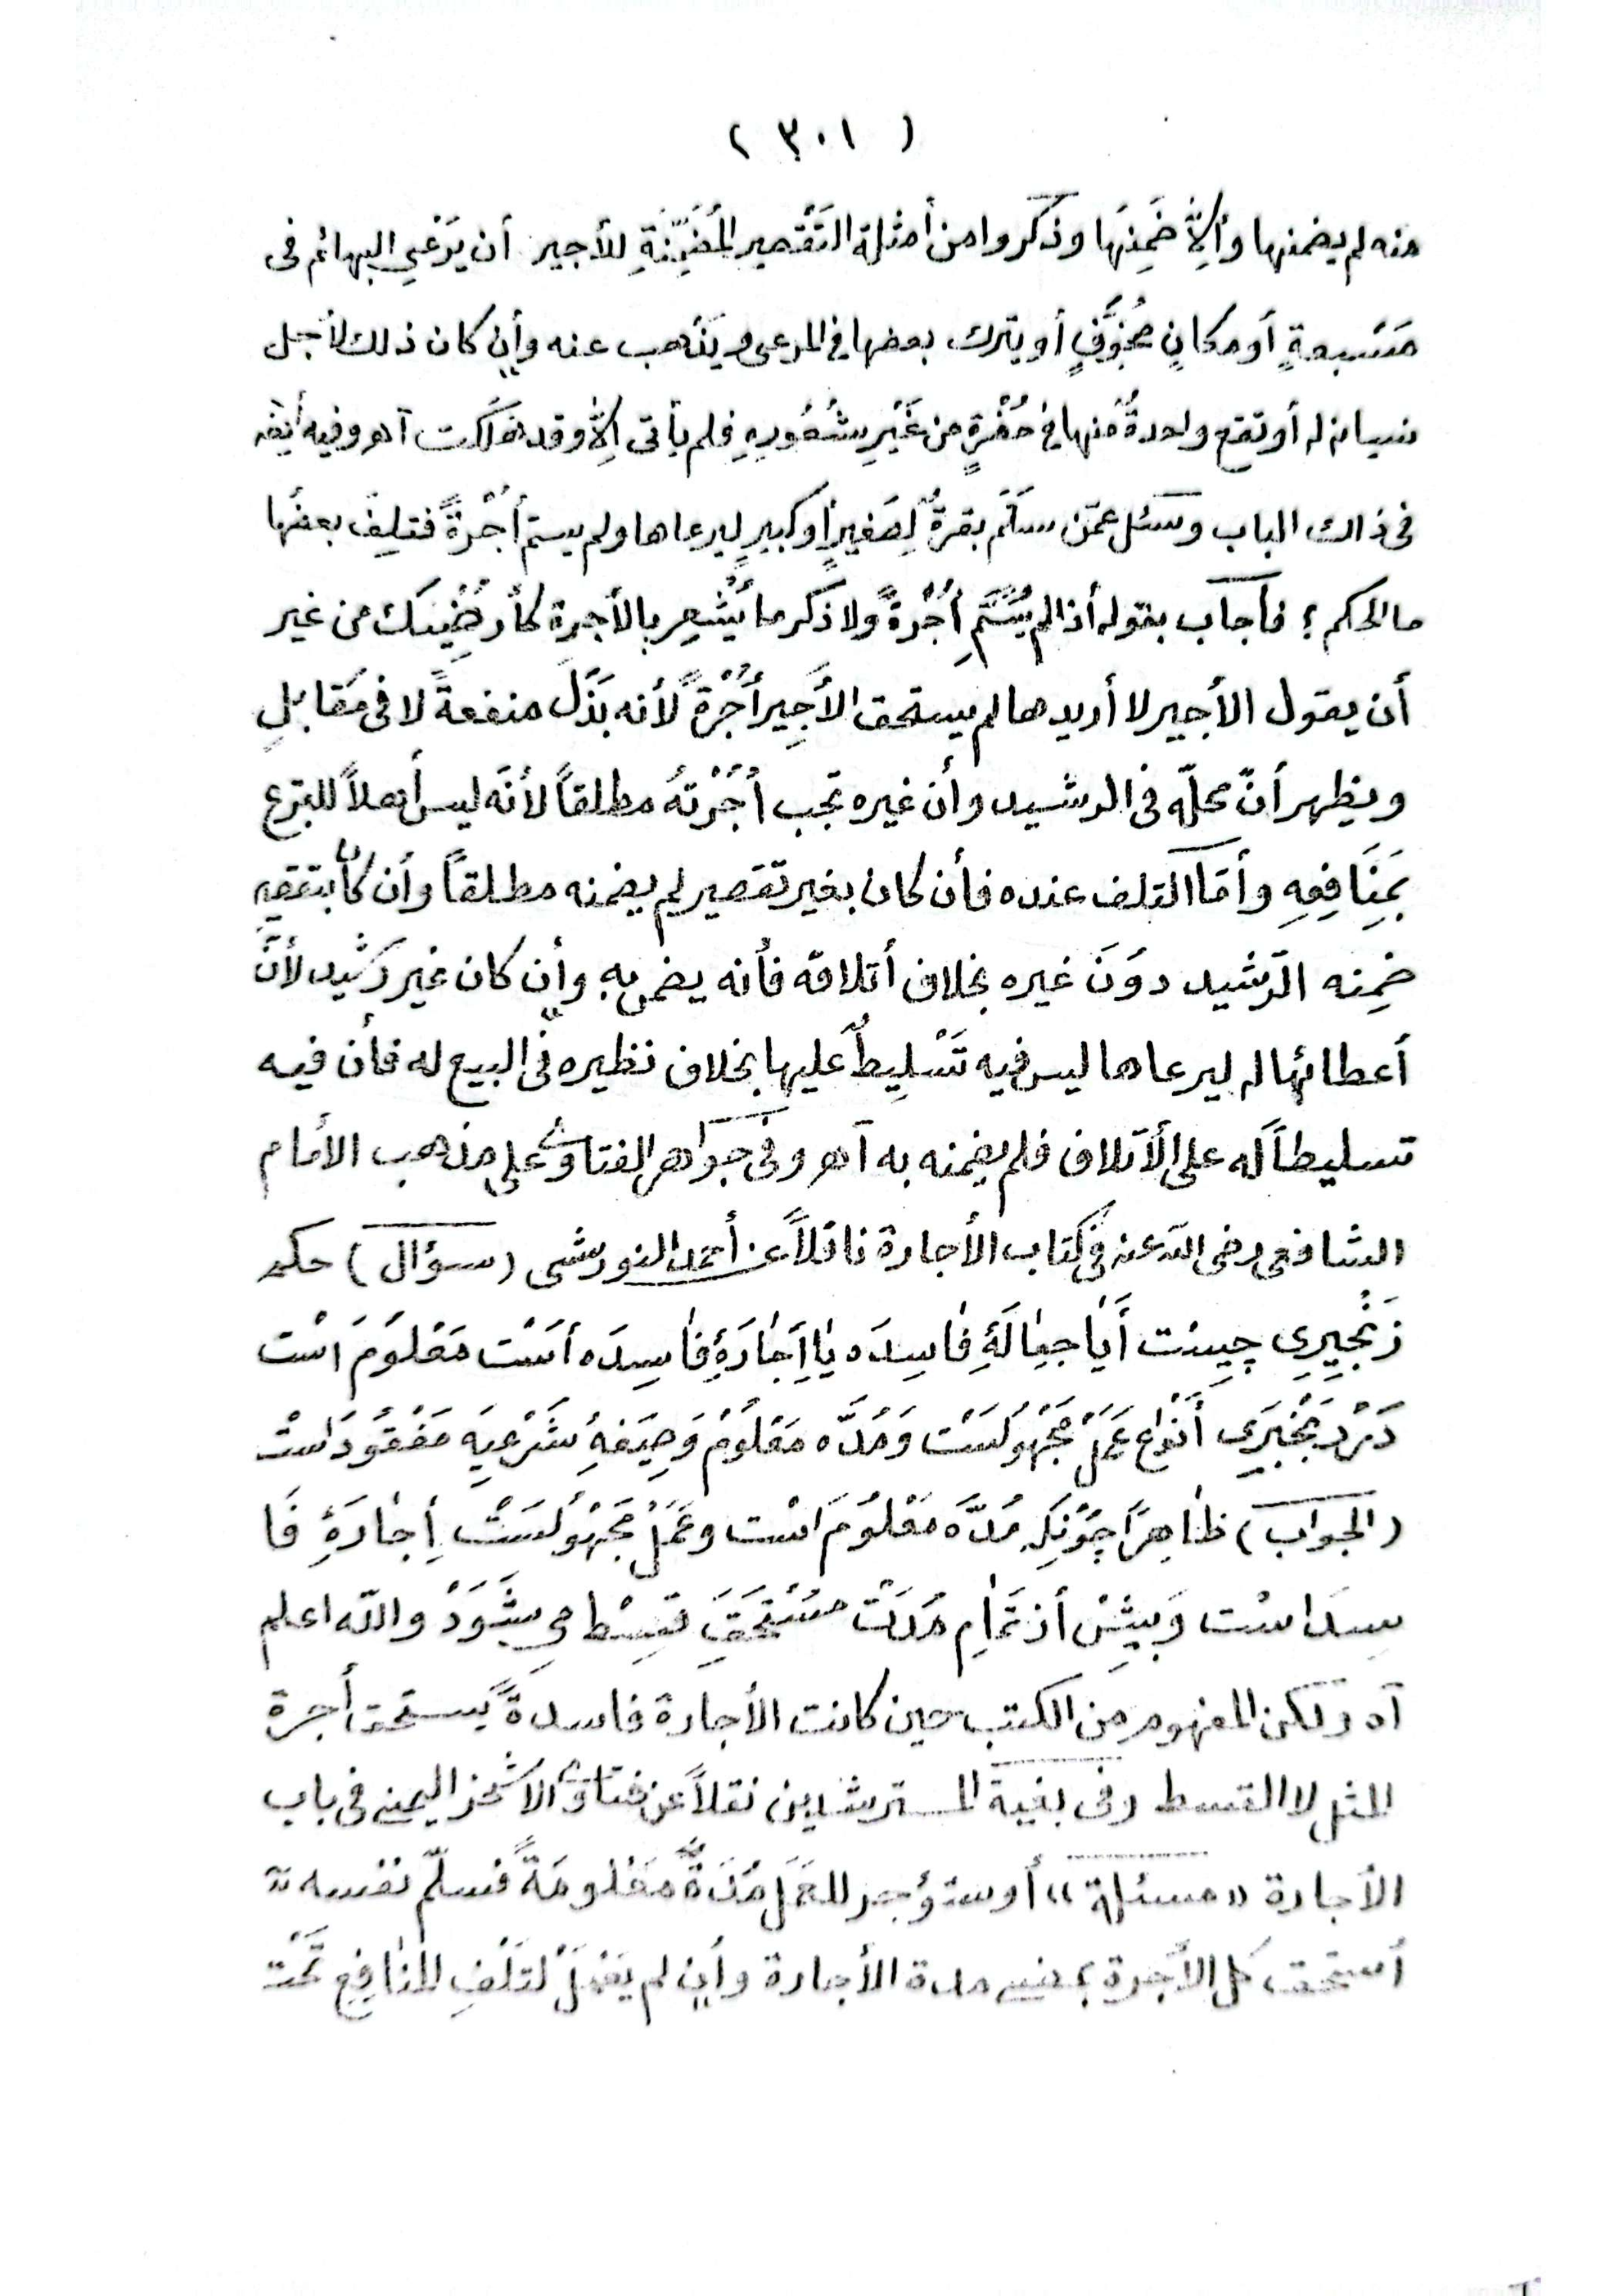 ( ٣٠١ )
منه لم يضمنها وأِلاَّ ضَمِنَها وذكروا من أمثلة التَقْصير المُضَمِّنَةِ للأجير أن يَرْعي البهائم فى
مَسْبعةٍ أو مكانٍ مُخوَّفٍ أو يترك بعضها فى المرعى ويَذْهب عنه وأِن كان ذلك لأجل
نسيانه له أو تقع واحدةٌ منها فى حُفْرةٍ من غَيْرِ شُعُورِهِ فلم يأتى اِلاَّ وقد هَلَكت آهـ وفيه أيضًا
فى ذالك الباب وسئل عمّن سَلَّم بقرةً لِصَغيرٍ أو كبيرٍ ليرعاها ولم يسم أُجْرَةً فتلِف بعضُها
ما الحكم ؟ فأجاب بقوله أذا لم يُسَمِّ أُجْرَةً ولا ذكر ما يُشْعِر بالأجرة كأُرضْيك من غير
أن يقول الأجير لا أريدها لم يستحق الأَجِير أُجْرَةً لأنه بَذَلَ منفعةً لا فى مُقَابلٍ
ويظهر أنّ محلّه فى الرشيد وأن غيره تجب أُجْرَتهُ مطلقاً لأنّه ليس أهلاً للتبرع
بِمَنَافِعِهِ وأمّا التلف عنده فأن كان بغير تقصير لم يضمنه مطلقاً وأن كان بتقصير
ضَمِنه الرّشيد دوُنَ غيره بخلاف أتلافه فأنه يضمن به وأِن كان غير رَشيد لأنَّ
أعطائها له ليرعاها ليس فيه تَسْلِيطٌ عليها بخلاف نظيره فى البيع له فأن فيه
تسليطاً له على الأتلاف فلم يضمنه به آهـ وفى جواهر الفتاوى على مذهب الأمام
الشافعى رضى الله عنه فى كتاب الأجارة ناقلاً عن أحمد النودشى (سؤال) حكم
رَنْجبرِي چيست أَيٰا جِعٰالَۀِ فٰاسِدَه يٰا اِجٰارَۀِ فٰاسِدَه أسَتْ مَعْلوُمَ اسْت
دَرْ رَنْجْبَرِي أَنْوٰاع عَمَلْ مَجْهوُلسَتْ وَمُدَّه مَعْلُومْ وَصِيَغهِٔ شَرْعِيَه مَفْقوُدَاسْت
(الجواب) ظٰاهِراً چوُنكِه مُدَّه مَعْلوُمَ اسْت وعَمَلْ مَجْهوُلسَتْ اِجٰارَۀِ فَا
سِدَ اسْت وَبيِشْ أز تَمٰامِ مُدَتْ مُسْتَحَقِ قِسْط مى شَوَدْ والله اعلم
آه ولكن المفهوم مِن الكتب حين كانت الأجارة فاسدةً يستحق أجرة
المثل لا القسط وفى بغية المسترشدين نقلاً عن فتاوى الاشخر اليمنى فى باب
الأجارة «مسئلة» أوستؤجر للعَمَل مُدَةً مَعْلومَةً فسلّم نفسه
أستحق كل الأجرة بمضى مدة الأجارة وأِن لم يَعْمَلْ لتَلَفِ المنٰافِعِ تَحْت